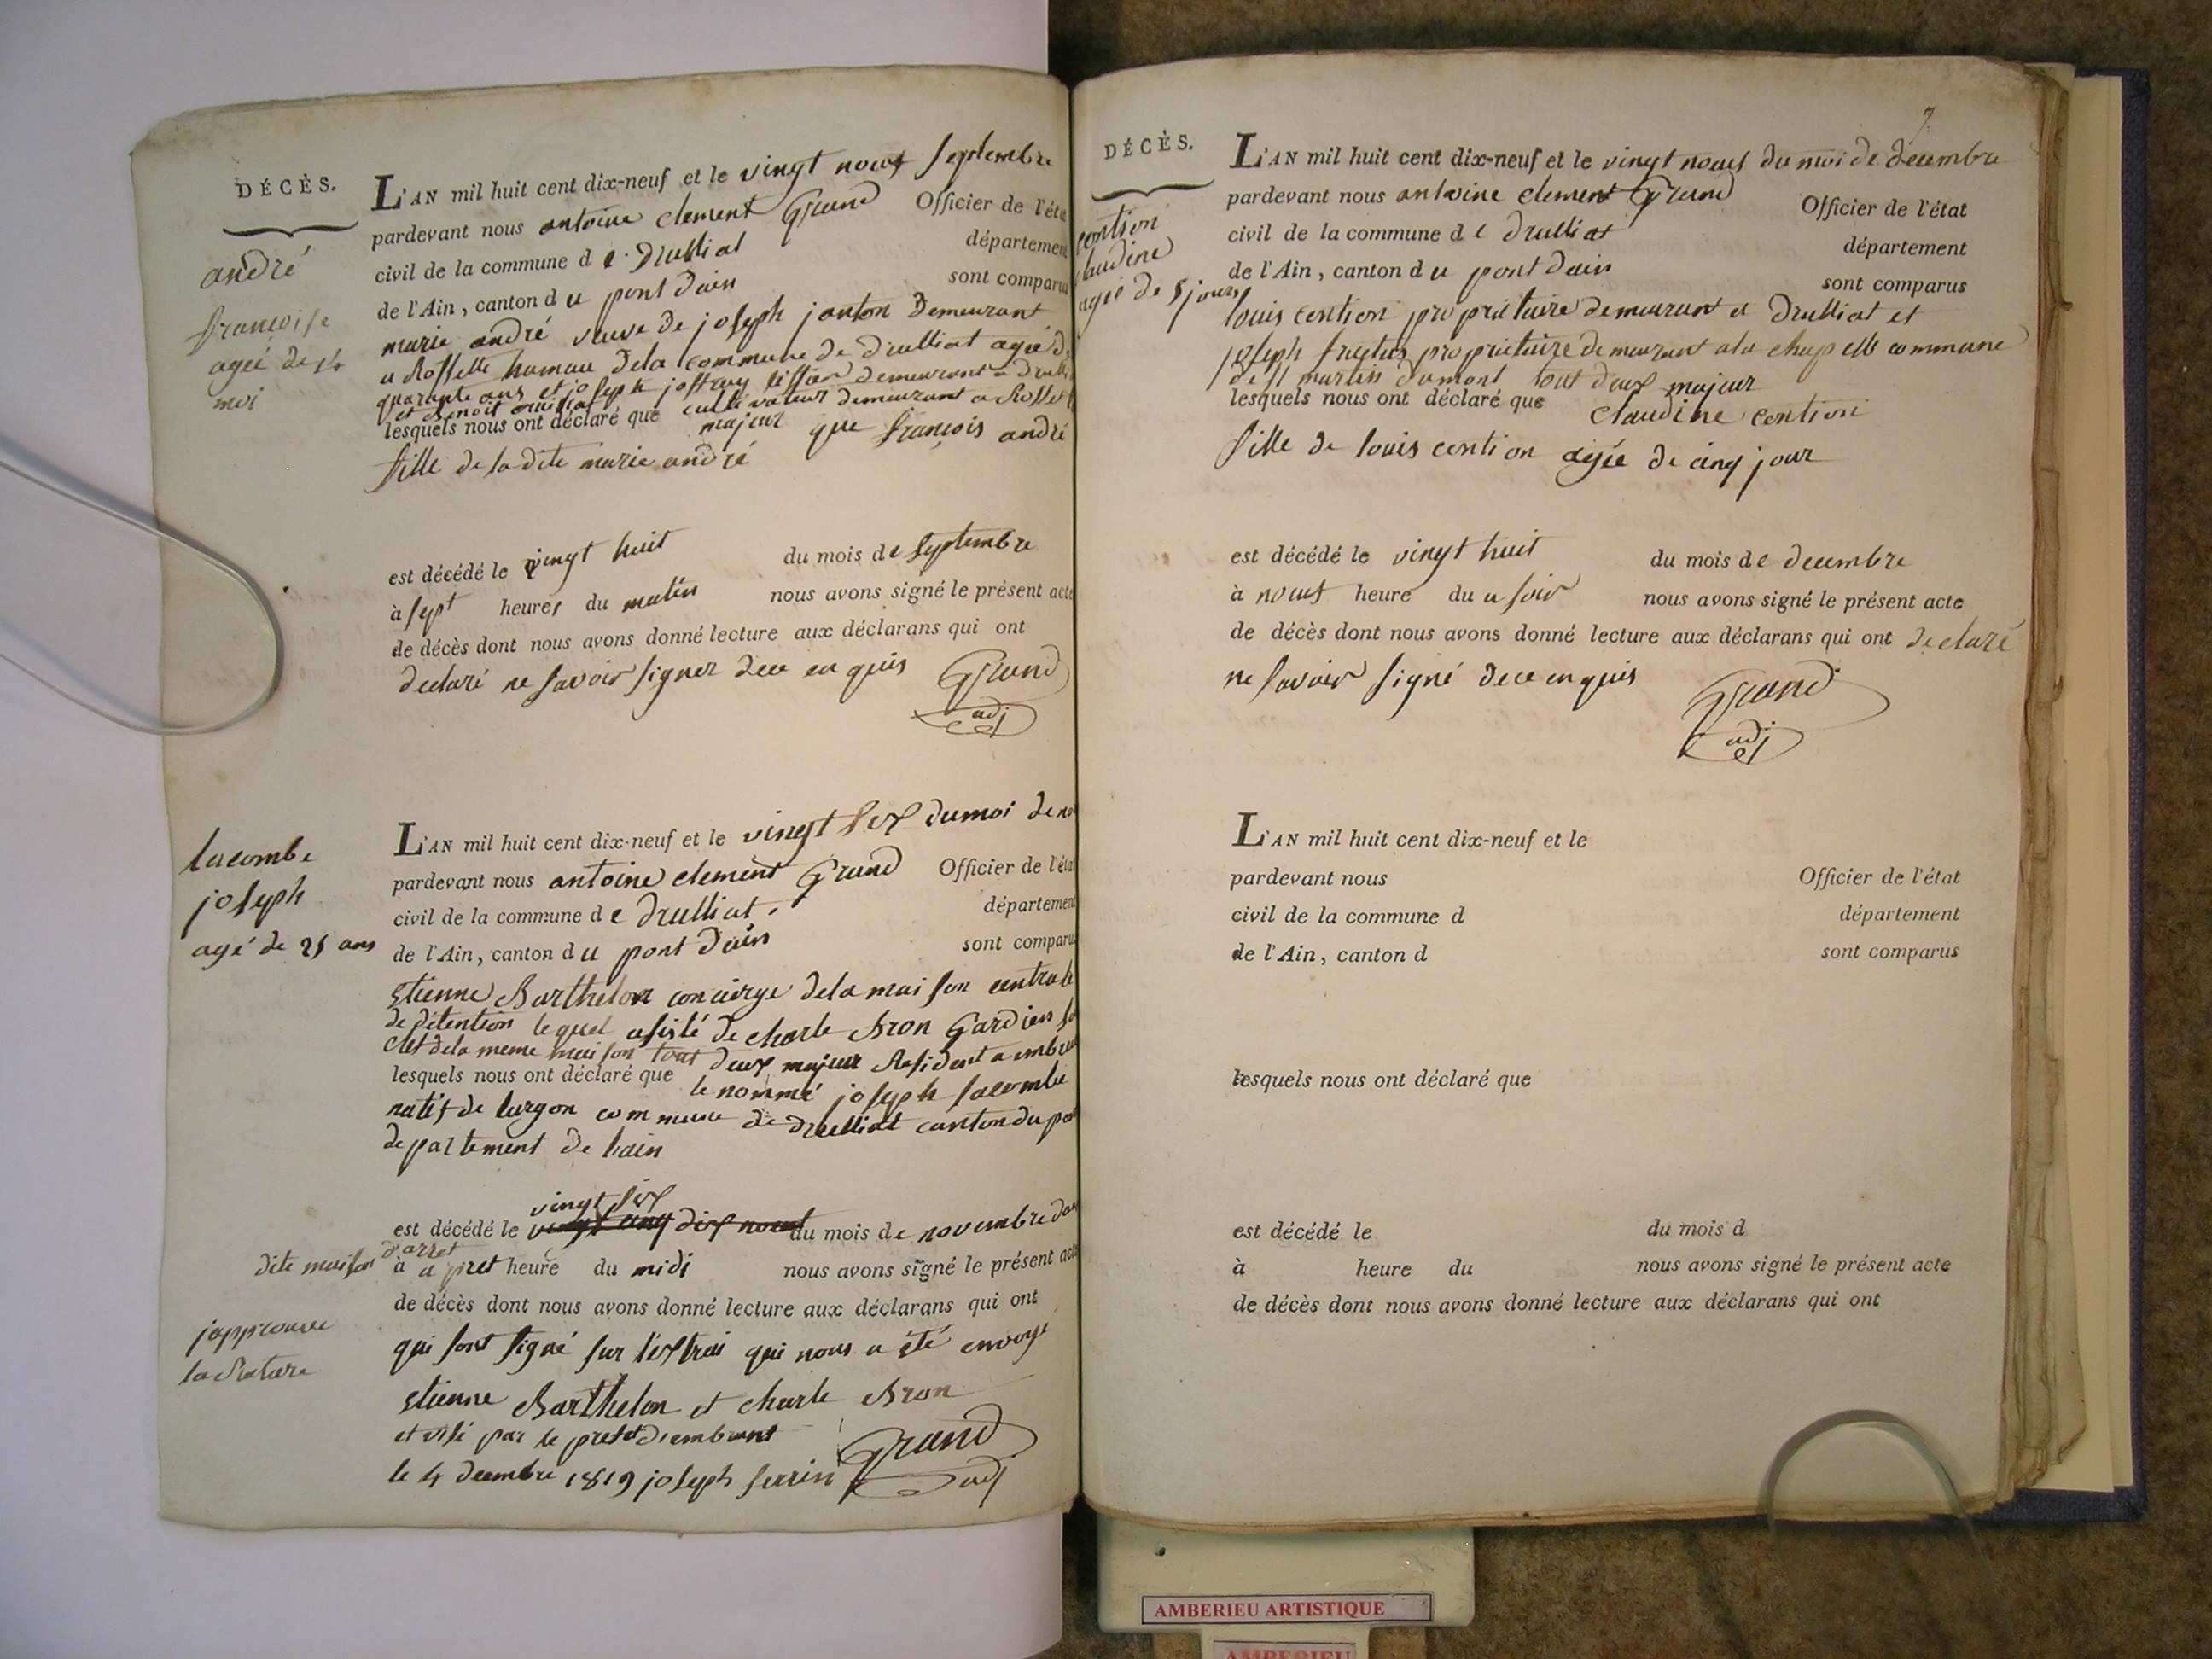 DÉCÈS.
andré
françoise
agée de 14
moi
L'AN mil huit cent dix-neuf et le vingt nouf septembre
pardevant nous antoine clement Grand Officier de l'éta
civil de la commune d e Drulliat départemen
de l'Ain, canton d u pont dain sont comparu
marie andré veuve de joseph janton Demeurant
a Rossette hamau dela commune de drulliat agée d
quarante ans et joseph joffray tissier demeurant a drulli
et Benoit cultivateur demeurant a Rossett
lesquels nous ont déclaré que majeur que françois andré
fille de la dite marie andré
est décédé le vingt huit du mois de septembre
à sept heures du matin nous avons signé le présent acte
de décès dont nous avons donné lecture aux déclarans qui ont
declaré ne savoir signer dece en quis Grand
adj
lacombe
joseph
agé de 25 ans
L'AN mil huit cent dix-neuf et le vingt six du moi de no
pardevant nous antoine clement Grand Officier de l'état
civil de la commune d e drulliat. département
de l'Ain, canton d u pont dain sont comparu
Etienne Barthelon concierge dela maison centrale
de détention lequel asisté de charle Bron Gardien
clef dela meme maison tout deux majeur Resident a embru
lesquels nous ont déclaré que le nommé joseph lacombe
natif de turgon commune de drulliat canton du pon
departement de lain
vingt six
est décédé le vingt cinq dix nouf du mois de novembre dan
dite maison d'arret
à a pret heure du midi nous avons signé le présent acte
de décès dont nous avons donné lecture aux déclarans qui ont
japprouve
la Rature
qui sont signé sur l'extrai qui nous a été envoye
Etienne Barthelon et charle Bron
et visé par le prefet d'embrunt
le 4 decembre 1819 joseph serrin Grand
adj
7
DÉCÈS.
contion
laudine
agée de 5 jours
L'AN mil huit cent dix-neuf et le vingt nouf du moi de decembre
pardevant nous antoine clement Grand Officier de l'état
civil de la commune d e drulliat département
de l'Ain, canton d u pont dain sont comparus
louis contion propriétaire demeurant a drulliat et
joseph propriétaire demeurant ala chapelle commune
de st martin dumont tout deux majeur
lesquels nous ont déclaré que claudine contion
fille de louis contion agée de cinq jour
est décédé le vingt huit du mois de decembre
à nouf heure du u soir nous avons signé le présent acte
de décès dont nous avons donné lecture aux déclarans qui ont declaré
ne savoir signé dece enquis Grand
adj
L'AN mil huit cent dix-neuf et le
pardevant nous Officier de l'état
civil de la commune d département
de l'Ain, canton d sont comparus
lesquels nous ont déclaré que
est décédé le du mois d
à heure du nous avons signé le présent acte
de décès dont nous avons donné lecture aux déclarans qui ont
AMBERIEU ARTISTIQUE
AMBERIEU